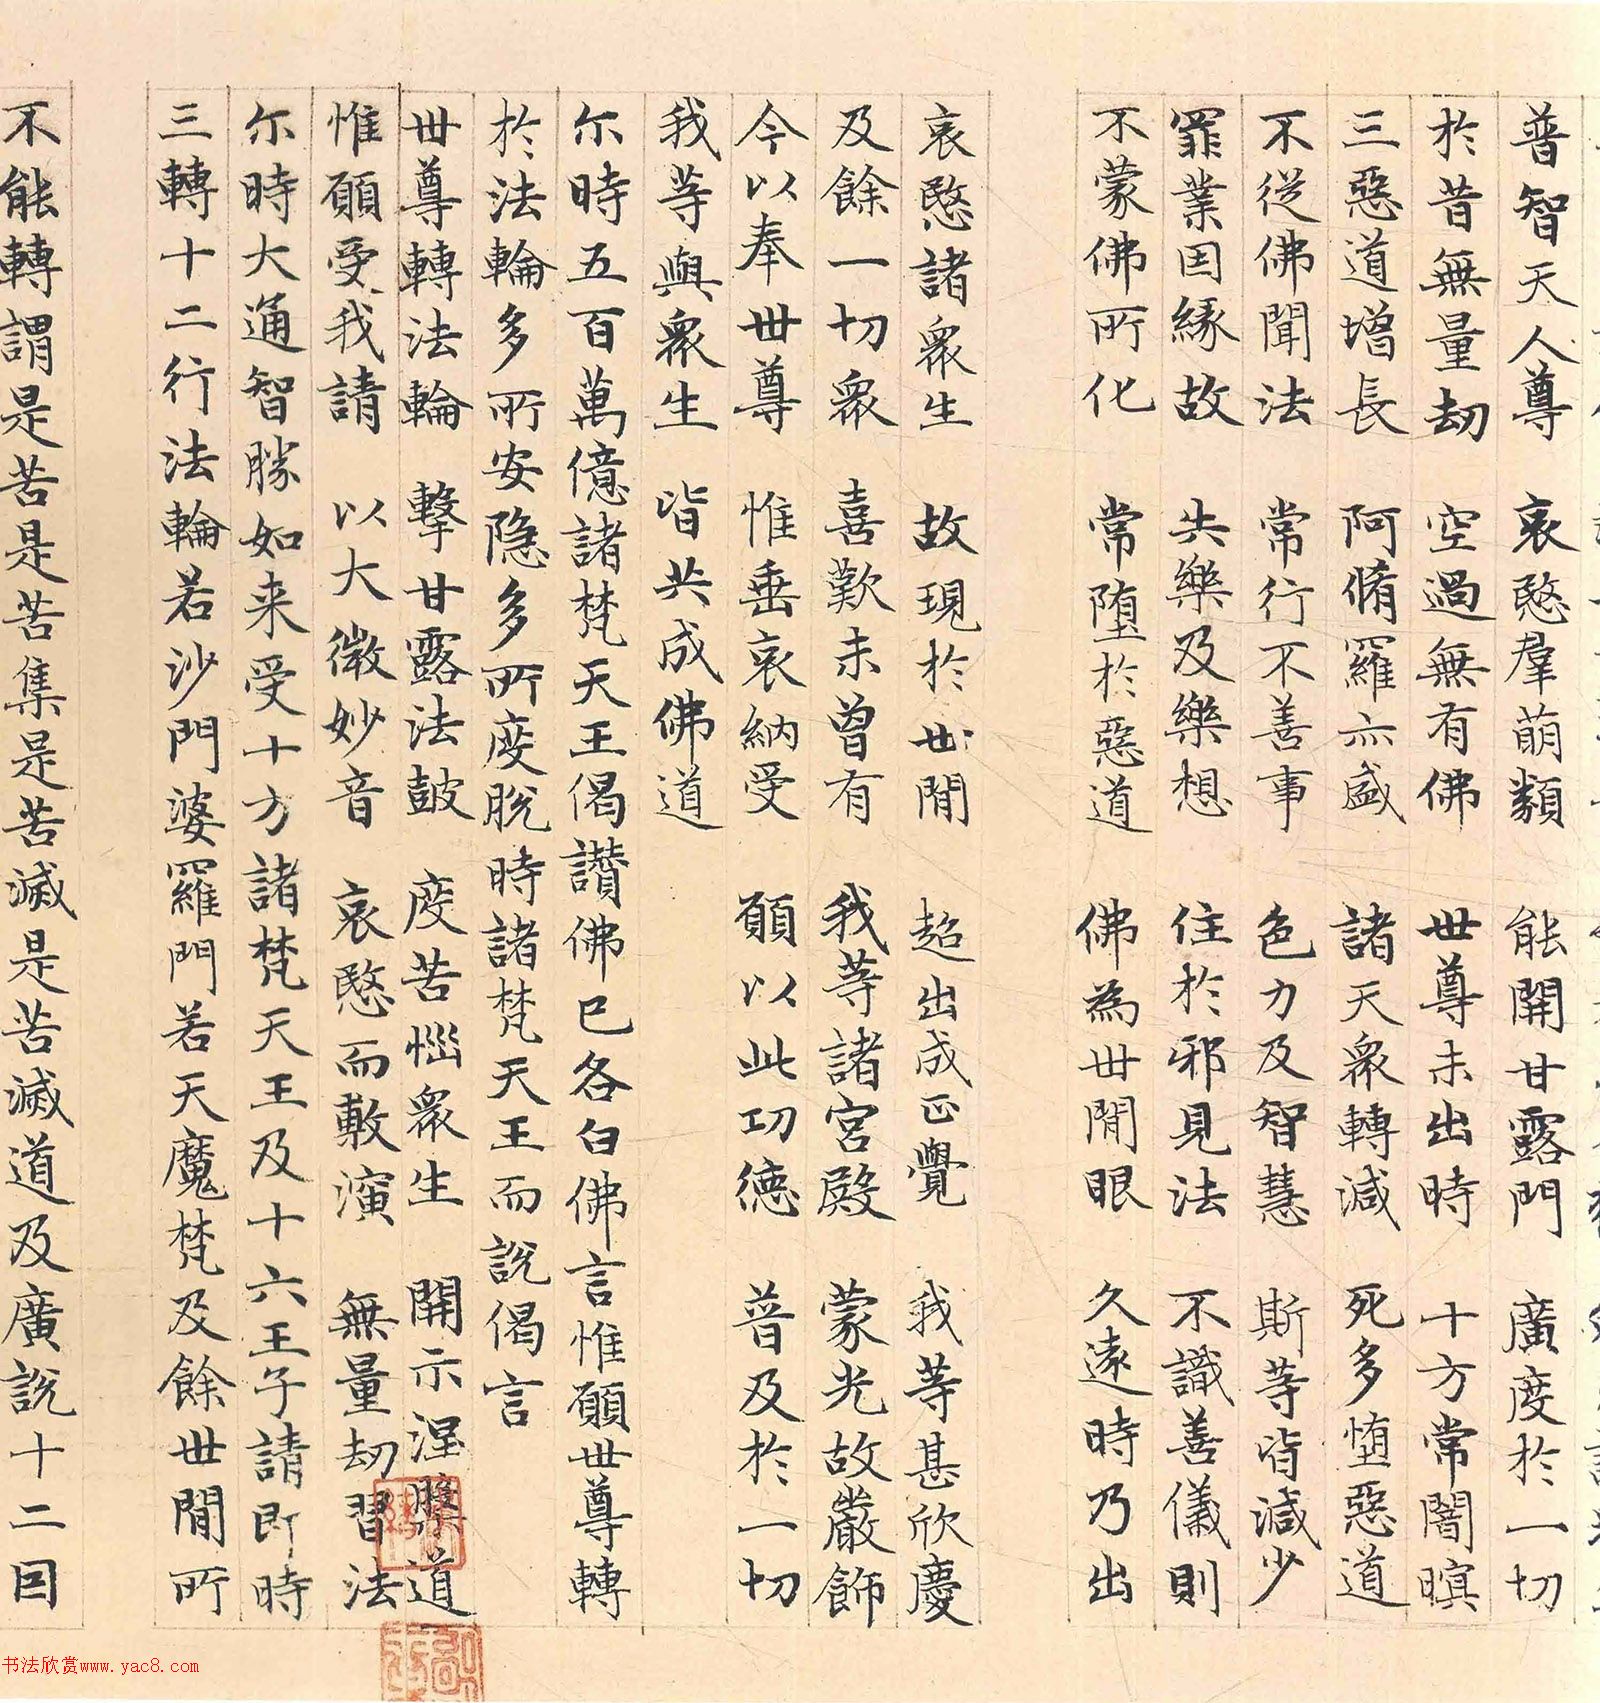 普智天人尊 哀愍羣萌類 能開甘露門 廣度於一切
於昔無量劫 空過無有佛 世尊未出時 十方常闇暝
三惡道增長 阿脩羅亦盛 諸天眾轉減 死多墮惡道
不從佛聞法 常行不善事 色力及智慧 斯等皆減少
罪業因緣故 失樂及樂想 住於邪見法 不識善儀則
不蒙佛所化 常墮於惡道 佛為世間眼 久遠時乃出
哀愍諸眾生 故現於世間 超出成正覺 我等甚欣慶
及餘一切眾 喜歎未曾有 我等諸宮殿 蒙光故嚴飾
今以奉世尊 惟垂哀納受 願以此功德 普及於一切
我等與眾生 皆共成佛道
尔時五百萬億諸梵天王偈讚佛已各白佛言惟願世尊轉
於法輪多所安隐多所度脫時諸梵天王而說偈言
世尊轉法輪 擊甘露法鼓 度苦惱眾生 開示涅槃道
惟願受我請 以大微妙音 哀愍而敷演 無量劫習法
尔時大通智勝如来受十方諸梵天王及十六王子請即時
三轉十二行法輪若沙門婆羅門若天魔梵及餘世間所
不能轉謂是苦是苦集是苦滅是苦滅道及廣說十二因
书法欣赏www.yac8.com